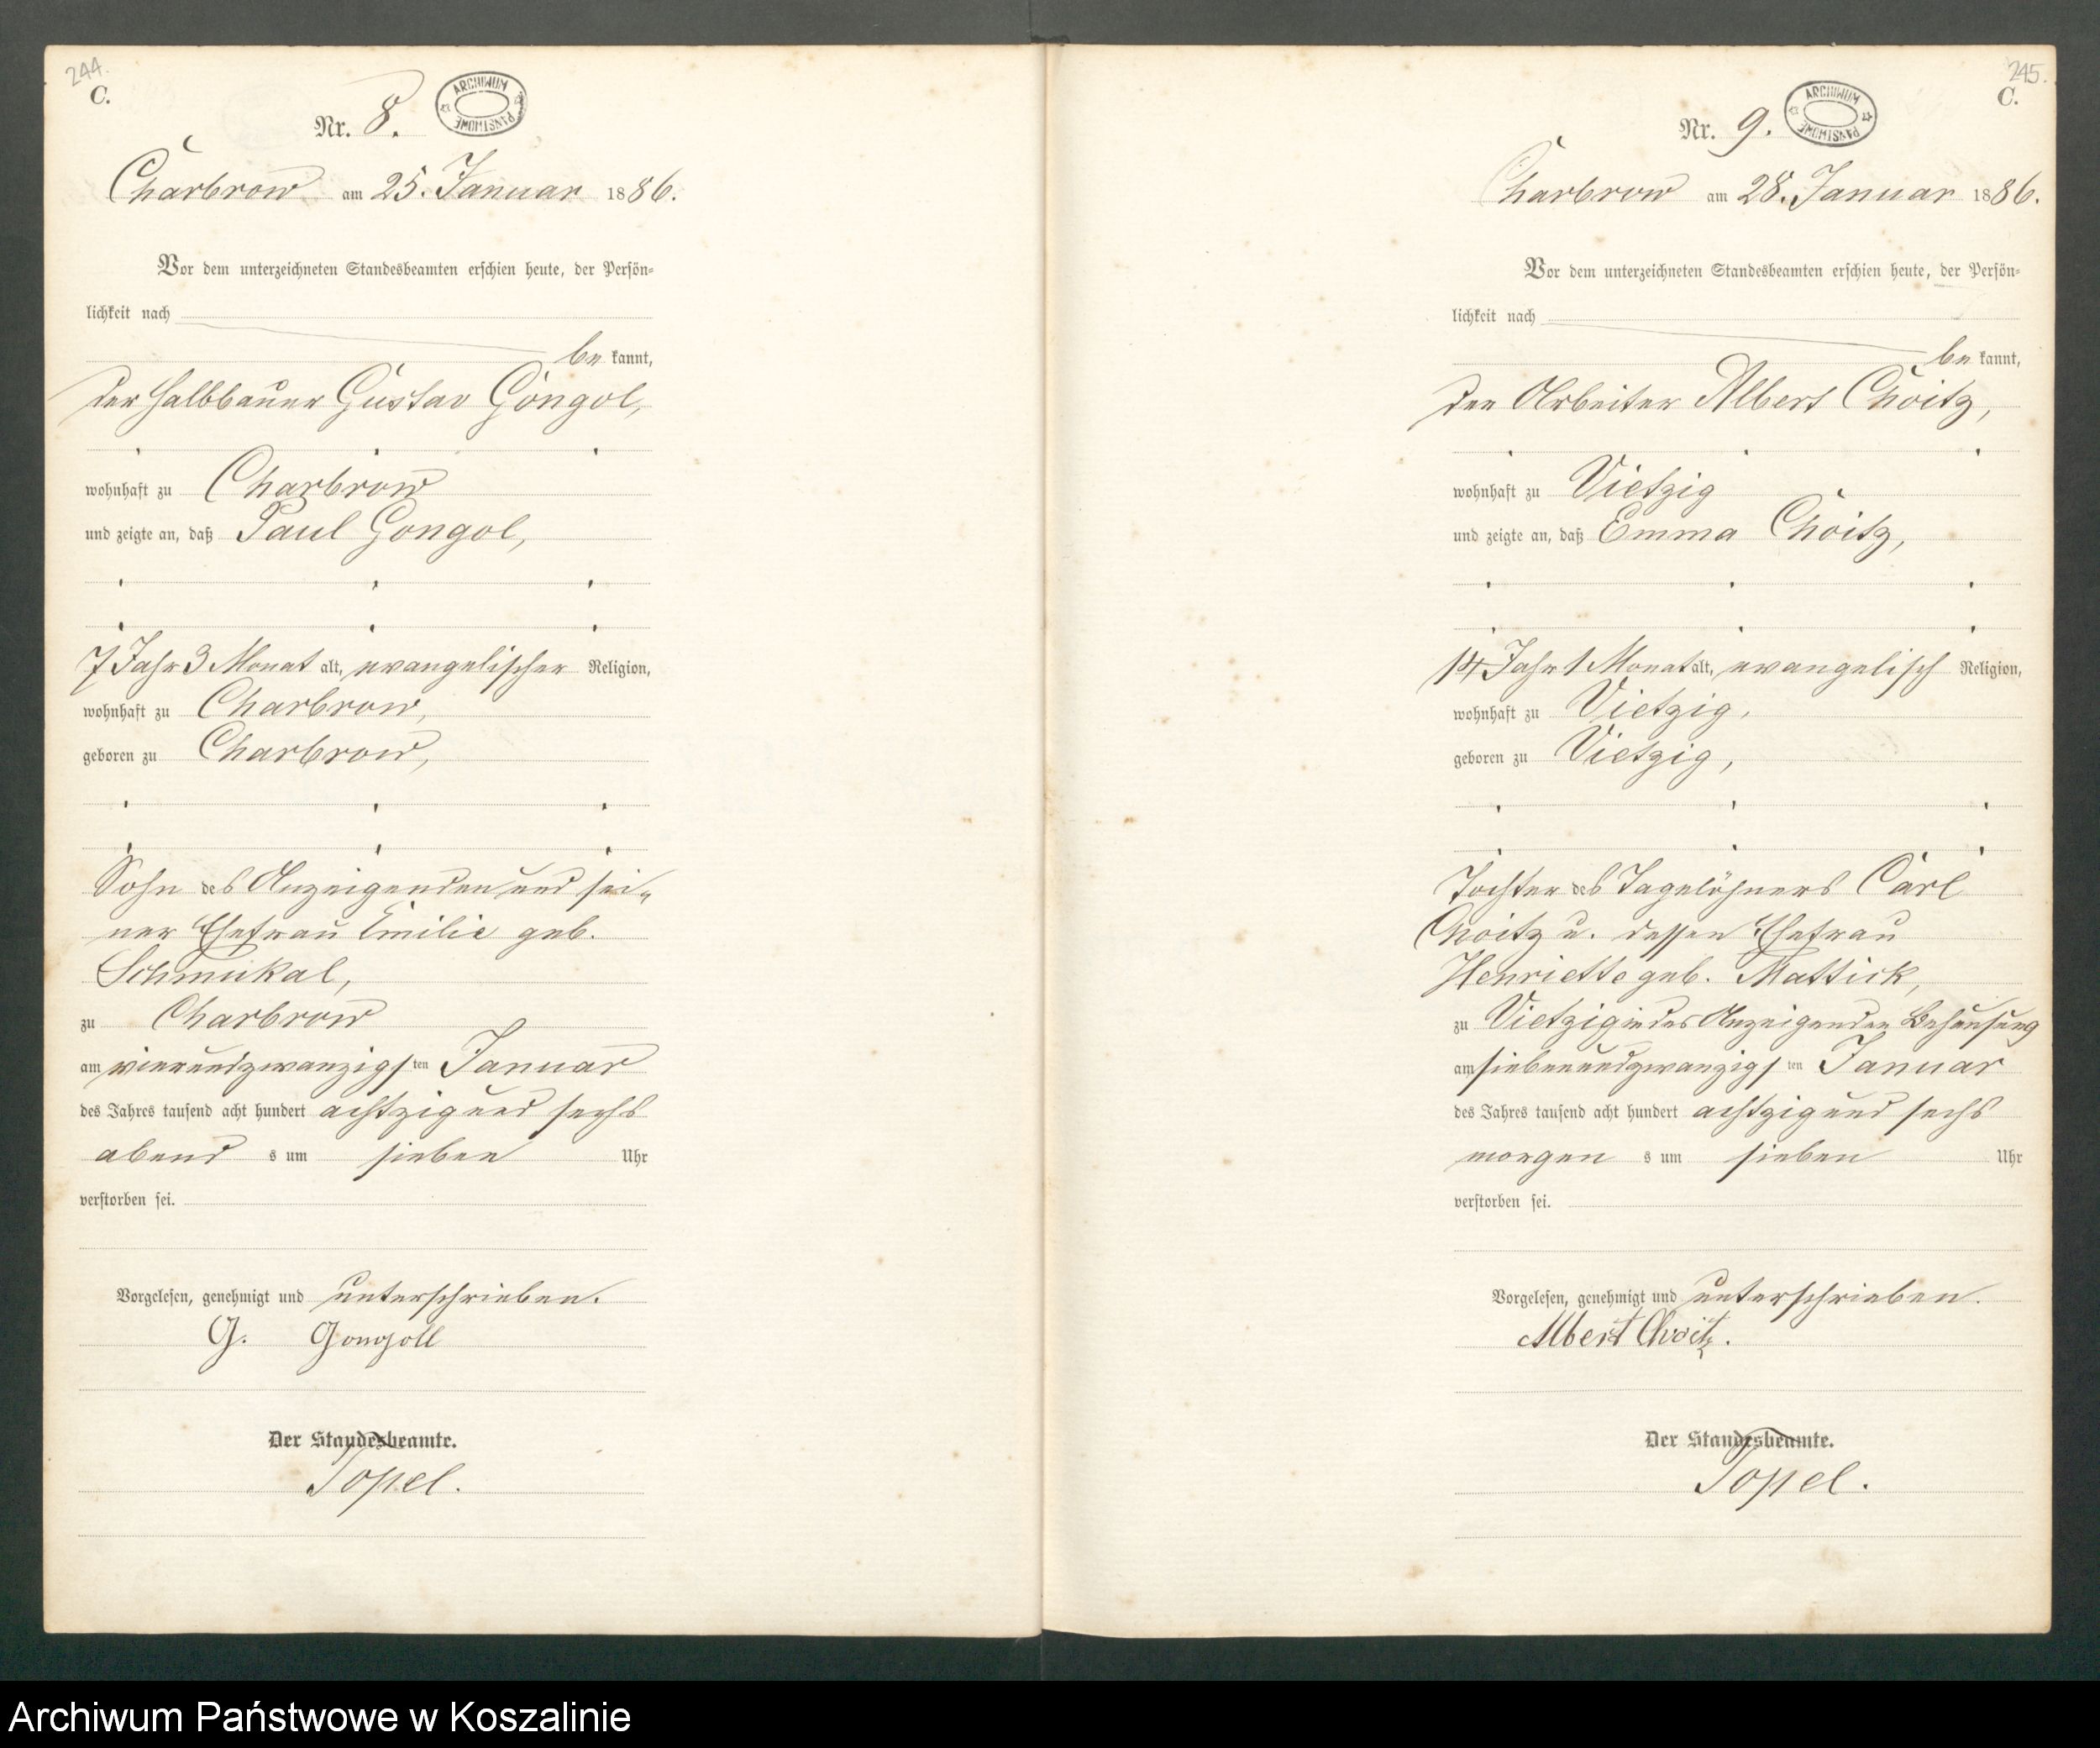 244.
C.
Nr. 8.
ARCHIWUM PAŃSTWOWE
Charbrow am 25. Januar 1886.
Vor dem unterzeichneten Standesbeamten erschien heute, der Persön-
lichkeit nach
be kannt,
der Halbbauer Gustav Gongol,
wohnhaft zu Charbrow
und zeigte an, daß Paul Gongol,
7 Jahr 3 Monat alt, evangelischer Religion,
wohnhaft zu Charbrow,
geboren zu Charbrow,
Sohn des Anzeigenden und sei-
ner Ehefrau Emilie geb.
Schmukal,
zu Charbrow
am vierundzwanzigsten Januar
des Jahres tausend acht hundert achtzig und sechs
abend s um sieben Uhr
verstorben sei.
Vorgelesen, genehmigt und unterschrieben.
G. Gongoll
Der Standesbeamte.
Topel.
245.
C.
Nr. 9.
ARCHIWUM PAŃSTWOWE
Charbrow am 28. Januar 1886.
Vor dem unterzeichneten Standesbeamten erschien heute, der Persön-
lichkeit nach
be kannt,
der Arbeiter Albert Choitz,
wohnhaft zu Vietzig
und zeigte an, daß Emma Choitz,
14 Jahr 1 Monat alt, evangelisch Religion,
wohnhaft zu Vietzig,
geboren zu Vietzig,
Tochter des Tagelöhners Carl
Choitz u. dessen Ehefrau
Henriette geb. Mattick,
zu Vietzig in des Anzeigenden Behausung
am siebenundzwanzigsten Januar
des Jahres tausend acht hundert achtzig und sechs
morgen s um sieben Uhr
verstorben sei.
Vorgelesen, genehmigt und unterschrieben.
Albert Choitz.
Der Standesbeamte.
Topel.
Archiwum Państwowe w Koszalinie